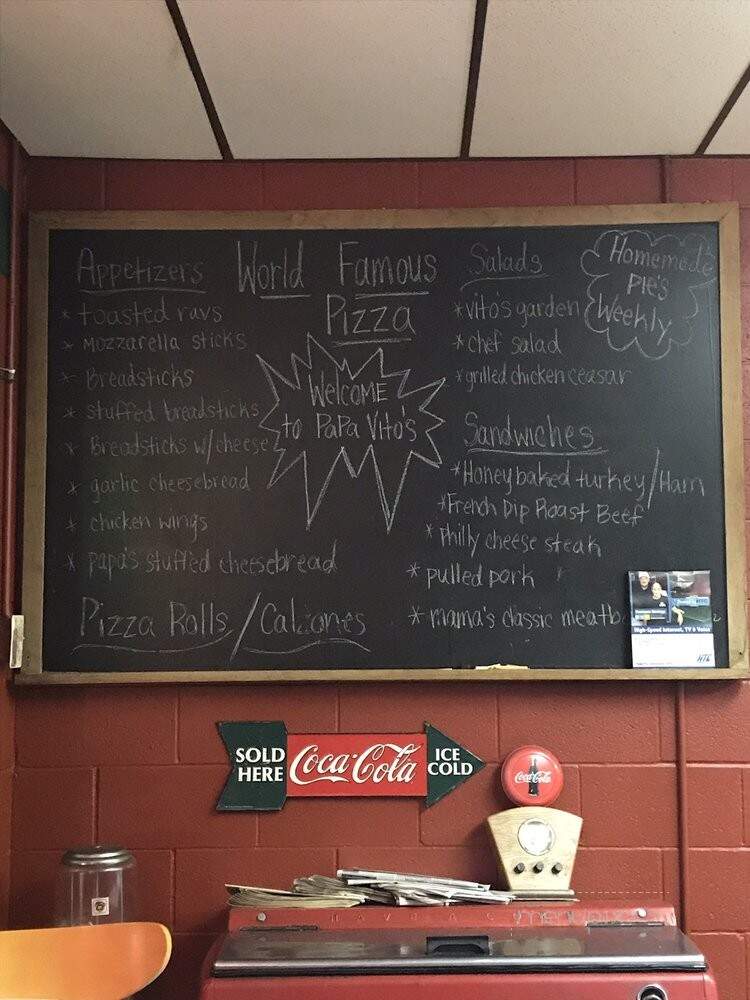 Appetizers
* toasted ravs
* Mozzarella sticks
* Breadsticks
* stuffed breadsticks
* Breadsticks w/cheese
* garlic cheesebread
* chicken wings
* papa's stuffed cheesebread
Pizza Rolls / Calzones
World Famous
Pizza
Welcome
to Papa Vito's
Salads
* vito's garden
* chef salad
* grilled chicken ceasar
Homemade
Pie's
Weekly
Sandwiches
* Honeybaked turkey/Ham
* French Dip Roast Beef
* philly cheese steak
* pulled pork
* mama's classic
High-Speed Internet, TV & Voice
SOLD
HERE
Coca-Cola
ICE
COLD
Coca-Cola